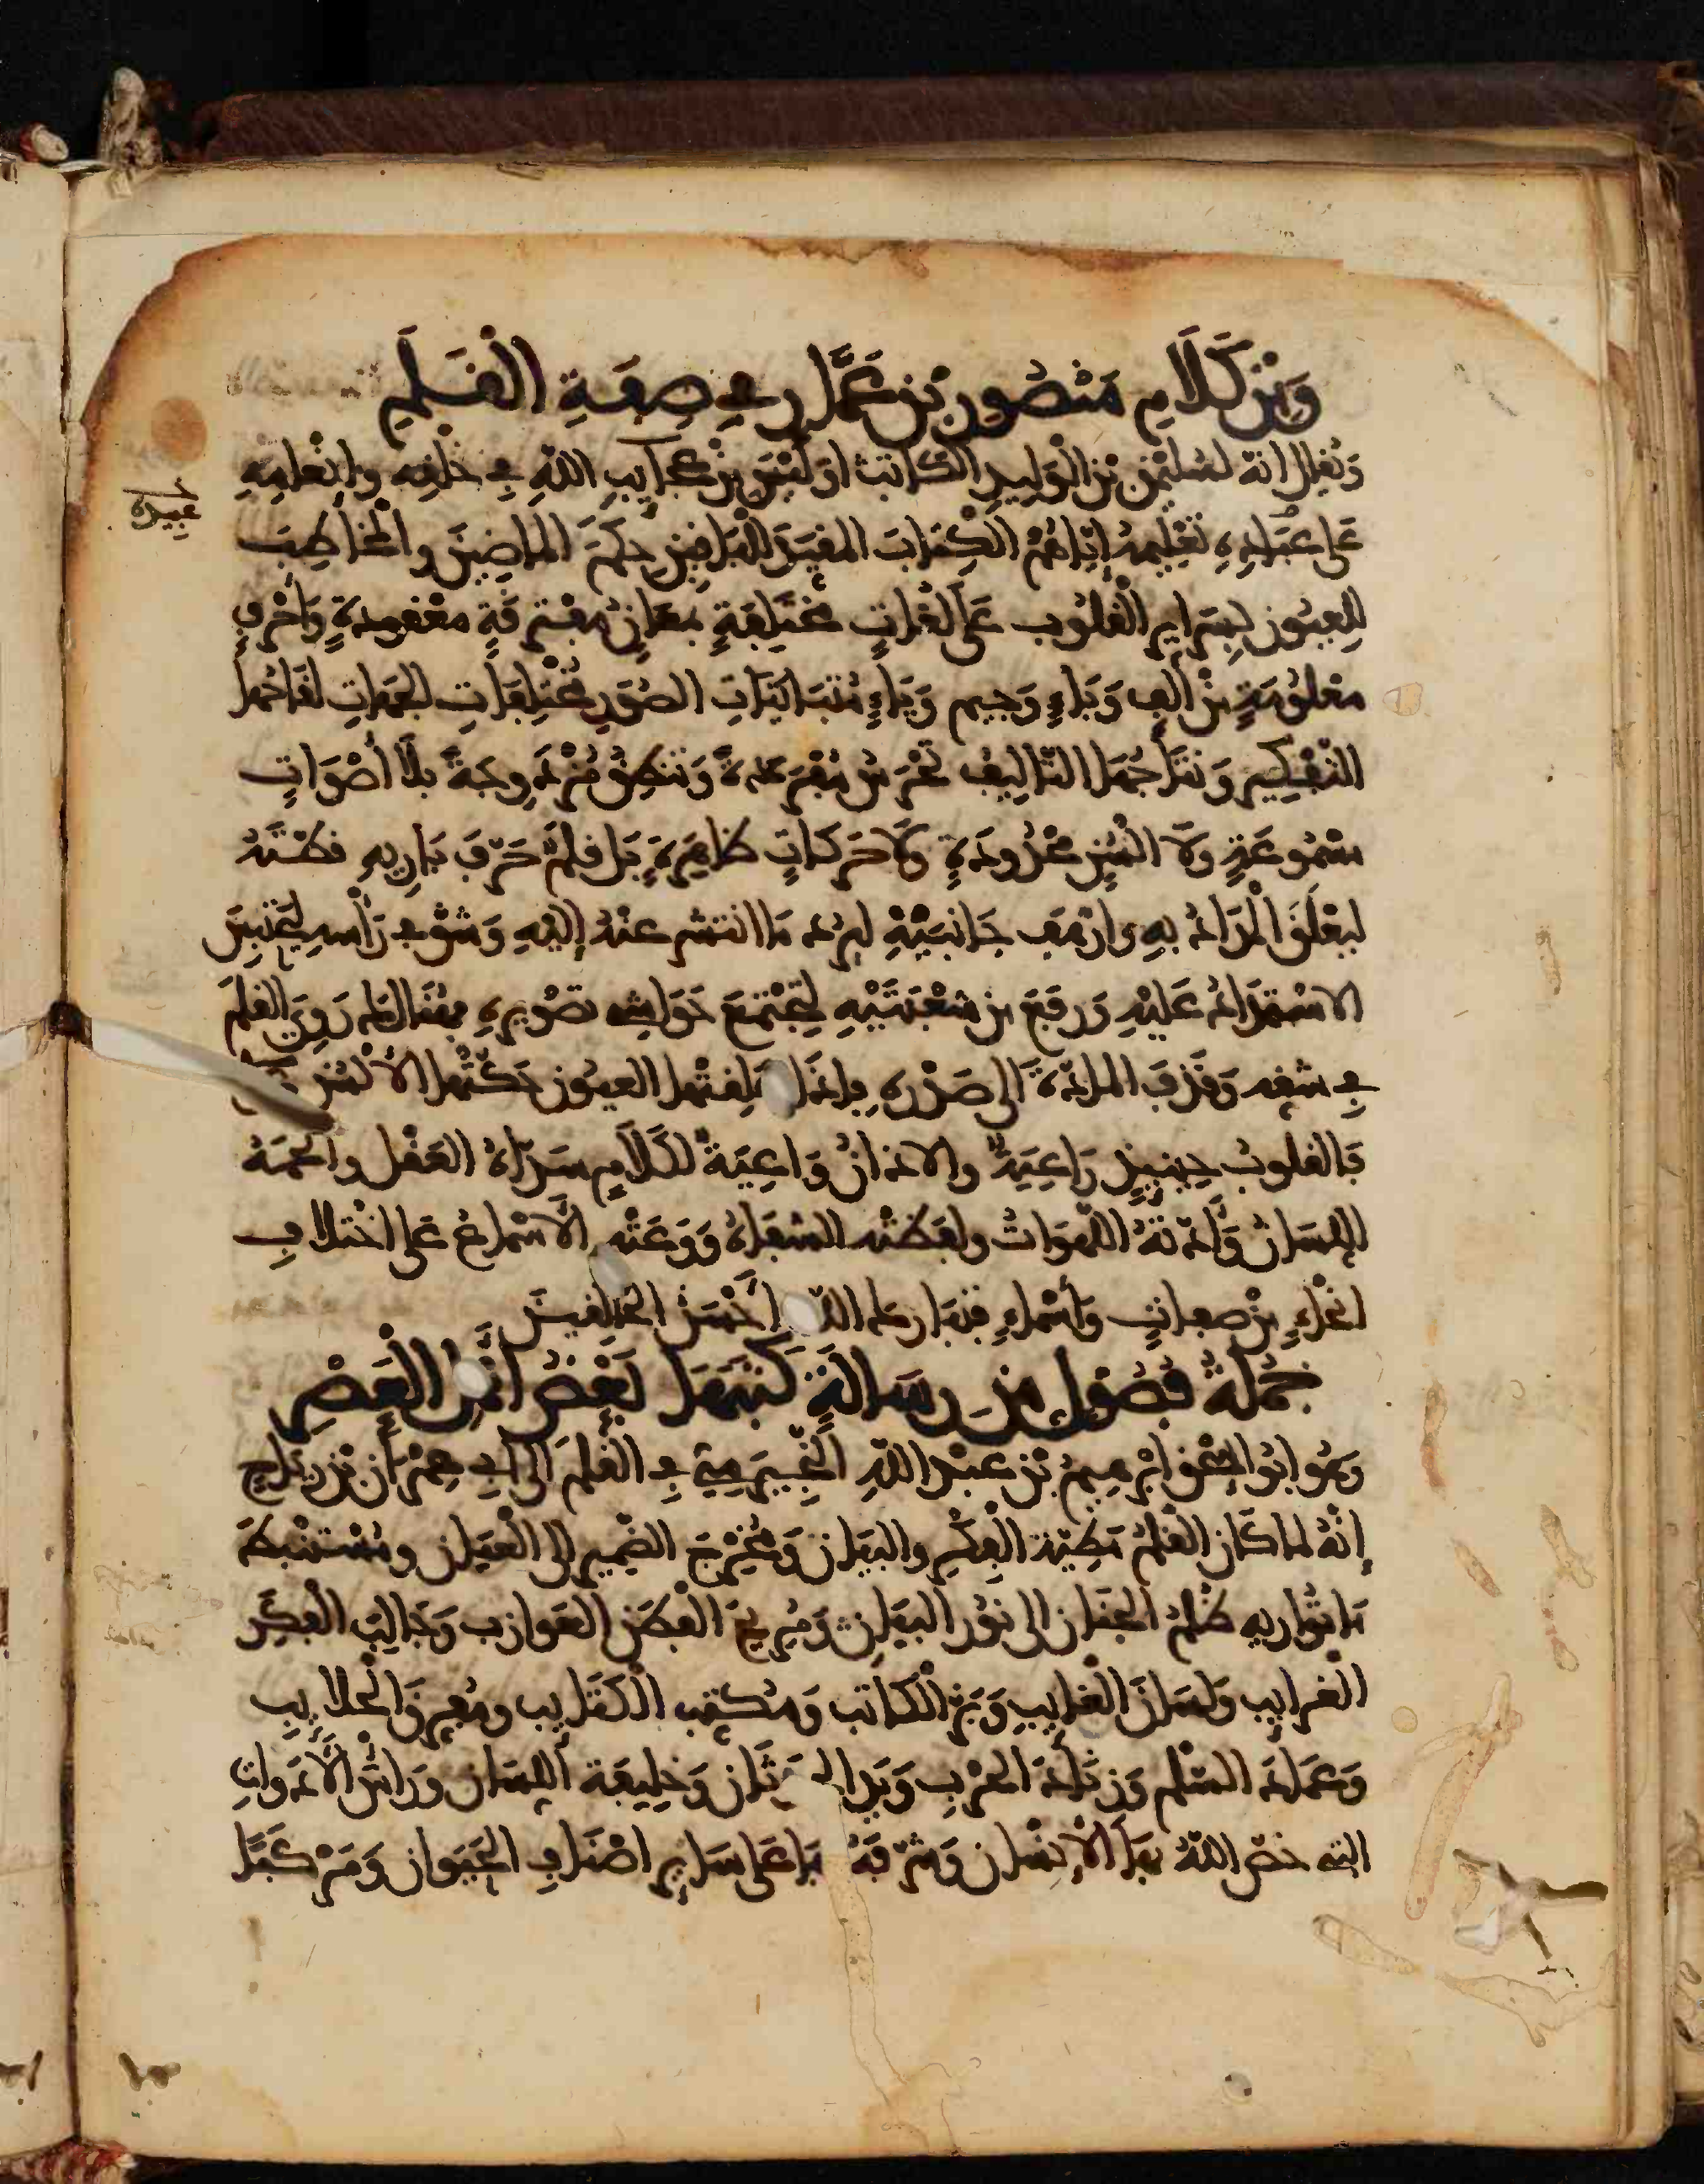 وَمِنْ كَلَامِ مَنْصُورِ بْنِ عَمَّارٍ فِي صِفَةِ الْقَلَمِ
وَيُقال انهُ لسُلَيْمٰن بْنِ الْوَلِيدِ الكَاتِبِ اوَلَيْسَ مِنْ عَجَايِبِ اللّهِ فِي خَلْقِهِ وانْعَامِهِ
عَلى عِبَادِهِ تَعْلِيمُهُ إيّاهُمُ الكِتَابَ المفيدَ للبَاقِينَ حِكَمَ المَاضِينَ والْمُخَاطِبَ
لِلعيُونِ بِسَرَايِرِ الْقلُوبِ عَلى لغَاتٍ مُخْتَلِفَةٍ بمَعَانٍ مُفْتَرِقَةٍ مَعْقُودَةٍ وَاحْرُفٍ
مَعْلومَةٍ مِنْ ألِفٍ وَبَاءٍ وَجِيم وَيَاءٍ مُتَبَايِنَاتِ الصُّوَرِ مُخْتَلِفَاتِ الجهَاتِ لقَاحُها
التّفْكِير وَنتَاجُهَا التّاليف تَخْرَسُ مُفْرَدَةً وَتَنْطِقُ مُزْدَوِجَةً بلَا أصْوَاتٍ
مسْمُوعَةٍ وَلَا الْسُنٍ مَحْدُودَةٍ وَلَا حَرَكَاتٍ ظَاهِرَةٍ بَل قلَمٌ حَرّفَ بَارِيهِ قطتَهُ
ليعْلَقَ الْمِدَادُ بِهِ وارْهَف جَانِبَيْهِ ليَرُد مَا انتشر عنْهُ إليْهِ وَشَقَّ في رَأْسِهِ ليَحْتَبِسَ
الاسْتمْدَادُ عَليْهِ وَرفَعَ مِن شعْبَتَيْهِ لتَجْتَمِعَ حَوَاشِي تصْوِيرِهِ فهنَالكَ رَوِيَ القلَمُ
فِي شقهِ وَقَذَفَ المادّةَ الى صَدْرِه فإذَا علِقتْها العيُون حَكتْهَا الألْسُن
فَالقلوبُ حِينَيِذٍ رَاعِيَةٌ والاذانُ وَاعِيَةٌ لكَلَامٍ سَدّاهُ العَقْل وألحَمَهُ
اللِّسَانُ وَأَدّتهُ اللّهَوَاتُ ولفَظتْه الشفَاهُ وَوَعَتْه الأسْمَاعُ عَلى اخْتلافِ
انحَاءٍ مِنْ صِفَاتٍ وَأسْمَاءٍ فتبَارك اللّه أَحْسَنُ الخَالقين
جُمْلَةُ فُصُولٍ مِن رِسَالَةٍ كَتَبَهَا بَعْضُ أهْلِ الْعَصْرِ
وَهُو ابُو إسْحٰق ابْرٰهِيمُ بْن عبْدِ اللّهِ النُّجَيْرَمِيّ فِي الْقَلَم الى أبِي عِمْرَان بْن رِيَاح
إنّهُ لما كَان القَلمُ مَطِيّة الْفِكْرِ والبَيَان وَمُخْرِجَ الضَّمِيرِ إلى الْعِيَان ومُسْتَنْبِطَ
مَا تُوَاريهِ ظُلَمُ الجِنَان الى نُور البَيَان وَمُرِيحَ الفِطَن العَوازب وَجَالِبَ الفِكَر
الْغَرَايِب وَلسَان الغَايب وَبَزّ الْكَاتب وَمُكَتِّب الكَتَايِب ومُفِرّقَ الْجلايِب
وَعمَادَ السّلم وَزِنَادَ الحَرْبِ وَيَد الحَدَثَان وَخَلِيفَة اللِّسَان وَرَأسَ الأدَوات
التي خصّ اللّهُ بهَا الْإنْسَان وَشرّفهُ بهَا عَلى سَاير اصْنَافِ الحَيَوان وَمَرْكَبًا